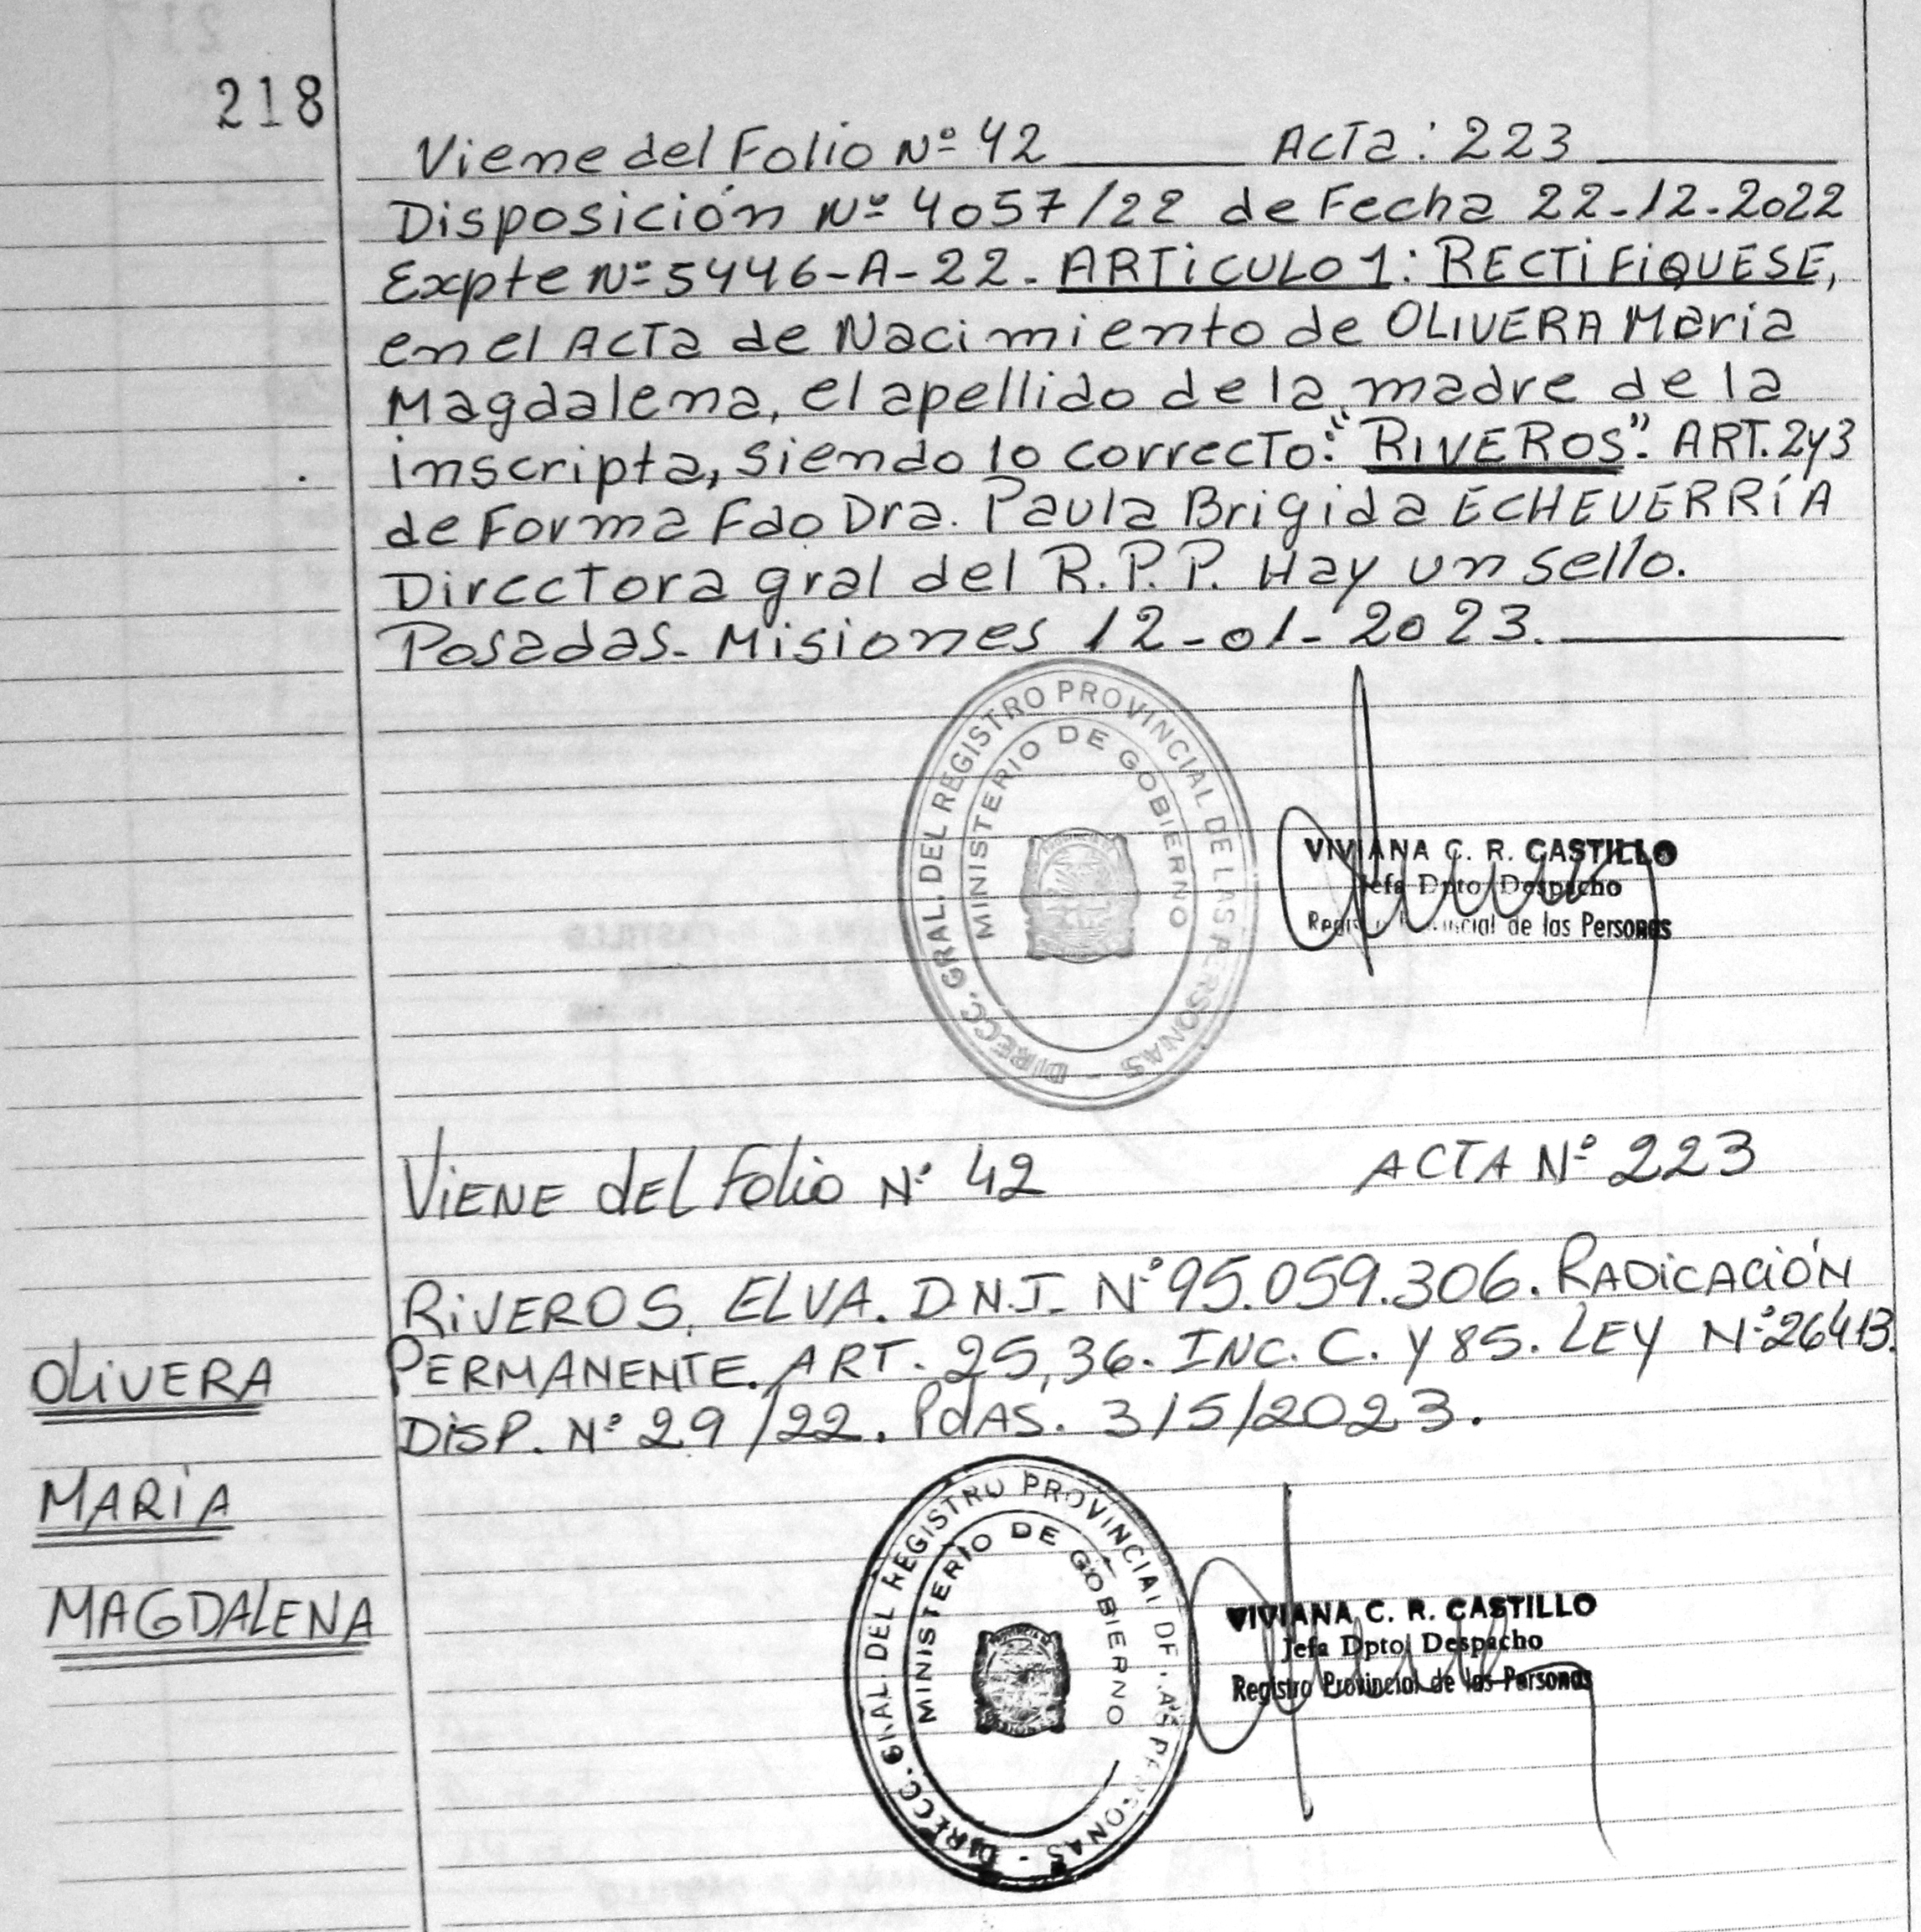 218
Viene del Folio Nº 42 Acta: 223
Disposición Nº 4057/22 de Fecha 22-12-2022
Expte Nº 5446-A-22. ARTiCULO 1: RECTiFiQUESE,
en el Acta de Nacimiento de OLIVERA Maria
Magdalena, el apellido de la madre de la
inscripta, siendo lo correcto: "RIVEROS". ART. 2y3
de Forma Fdo Dra. Paula Brigida ECHEVERRÍA
Directora gral del R.P.P. Hay un sello.
Posadas. Misiones 12-01-2023.
DIRECC. GRAL. DEL REGISTRO PROVINCIAL DE LAS PERSONAS -
MINISTERIO DE GOBIERNO
VIVIANA C. R. CASTILLO
Jefa Dpto Despacho
Registro Provincial de las Personas
ViENE dEL Folio Nº 42 ACTA Nº 223
RiVEROS, ELVA. D.N.I. Nº 95.059.306. RADiCACiÓN
PERMANENTE. ART. 25, 36. INC. C. Y 85. LEY Nº 26413.
DiSP. Nº 29/22. PdAS. 3/5/2023.
OLiVERA
MARÍA
MAGDALENA
DIRECC. GRAL. DEL REGISTRO PROVINCIAL DE LAS PERSONAS -
MINISTERIO DE GOBIERNO
VIVIANA C. R. CASTILLO
Jefa Dpto Despacho
Registro Provincial de las Personas